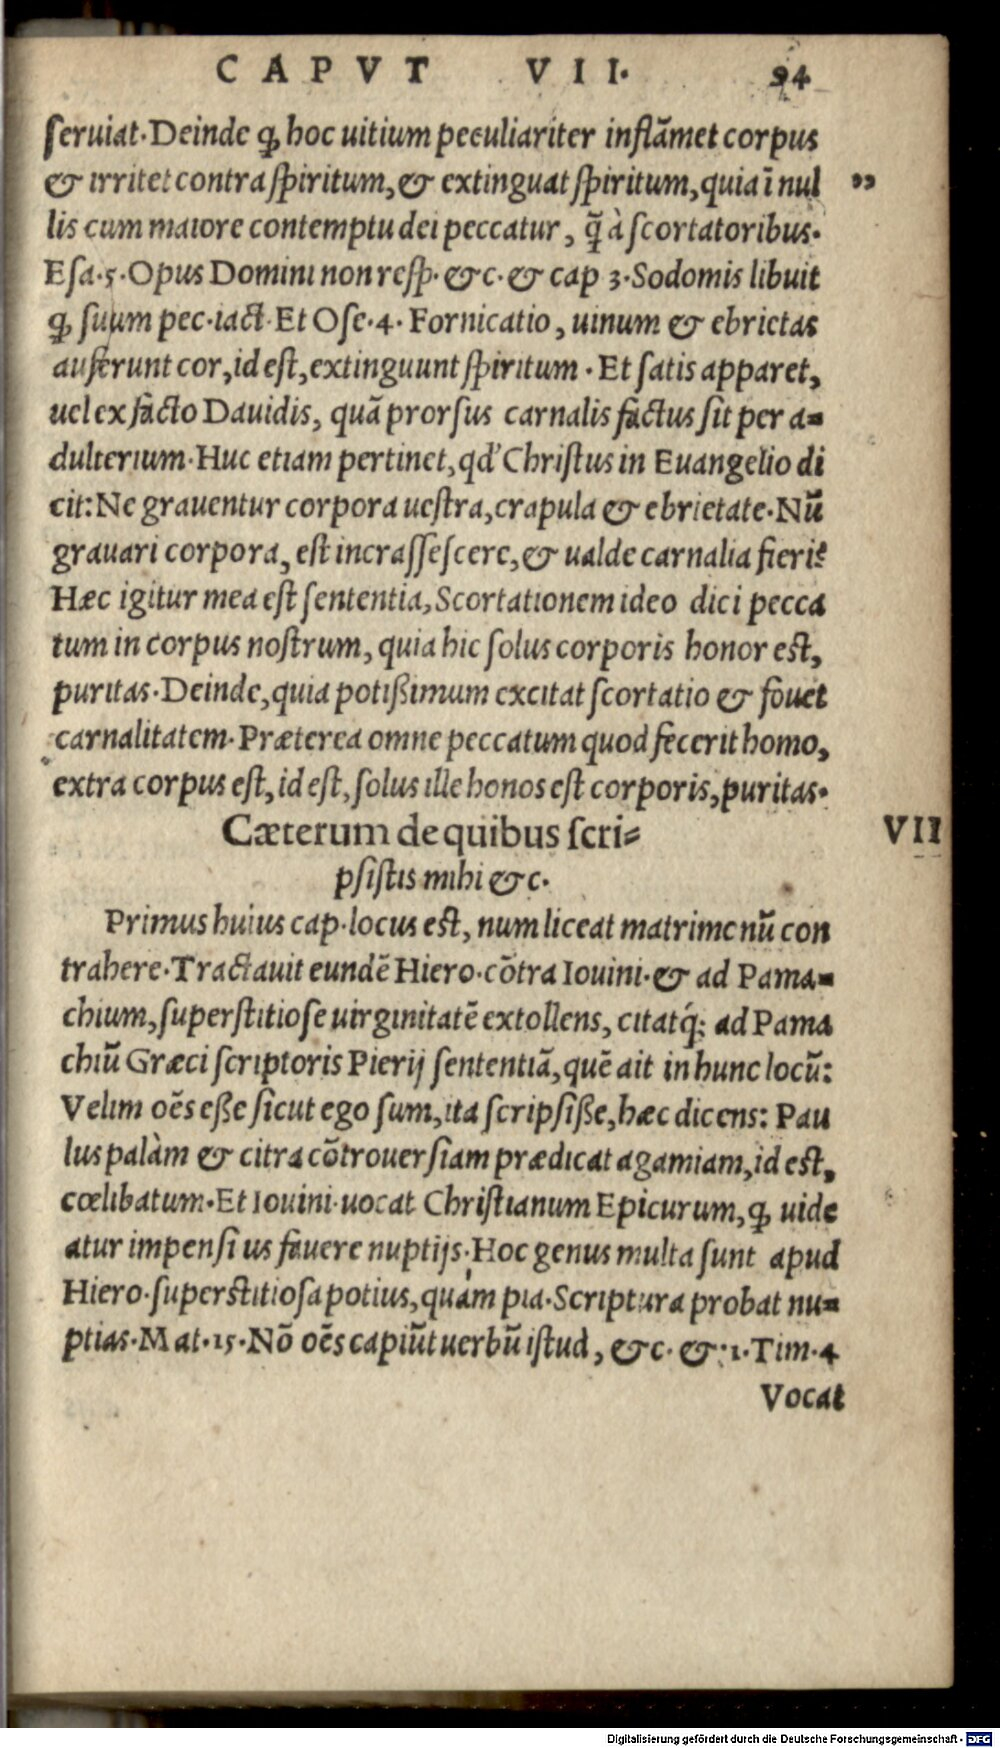 CAPVT VII. 94
ſeruiat. Deinde ꝙ hoc uitium peculiariter inflãmet corpus
& irritet contra ſpiritum, & extinguat ſpiritum, quia ĩ nul „
lis cum maiore contemptu dei peccatur, q̃ à ſcortatoribus.
Eſa. 5. Opus Domini non reſp. &c. & cap 3. Sodomis libuit
ꝙ ſuum pec. iact. Et Oſe. 4. Fornicatio, uinum & ebrietas
auferunt cor, id eſt, extinguunt ſpiritum. Et ſatis apparet,
uel ex facto Dauidis, quã prorſus carnalis factus ſit per a=
dulterium. Huc etiam pertinet, qd' Chriſtus in Euangelio di
cit: Ne grauentur corpora ueſtra, crapula & ebrietate. Nũ
grauari corpora, eſt incraſſeſcere, & ualde carnalia fieri?
Hæc igitur mea eſt ſententia, Scortationem ideo dici pecca
tum in corpus noſtrum, quia hic ſolus corporis honor eſt,
puritas. Deinde, quia potißimum excitat ſcortatio & fouet
carnalitatem. Præterea omne peccatum quod fecerit homo,
extra corpus eſt, id eſt, ſolus ille honos eſt corporis, puritas.
Cæterum de quibus ſcri= VII
pſiſtis mihi &c.
Primus huius cap. locus eſt, num liceat matrimonũ con
trahere. Tractauit eundẽ Hiero. cõtra Iouini. & ad Pama=
chium, ſuperſtitioſe uirginitatẽ extollens, citatq́; ad Pama
chiũ Græci ſcriptoris Pierij ſententiã, quẽ ait in hunc locũ:
Velim oẽs eße ſicut ego ſum, ita ſcripſiße, hæc dicens: Pau
lus palàm & citra cõtrouerſiam prædicat agamiam, id eſt,
cœlibatum. Et Iouini. uocat Chriſtianum Epicurum, ꝙ uide
atur impenſius fauere nuptijs. Hoc genus multa ſunt apud
Hiero. ſuperſtitioſa potius, quàm pia. Scriptura probat nu=
ptias. Mat. 15. Nõ oẽs capiũt uerbũ iſtud, &c. & 1. Tim. 4
Vocat
Digitalisierung gefördert durch die Deutsche Forschungsgemeinschaft - DFG